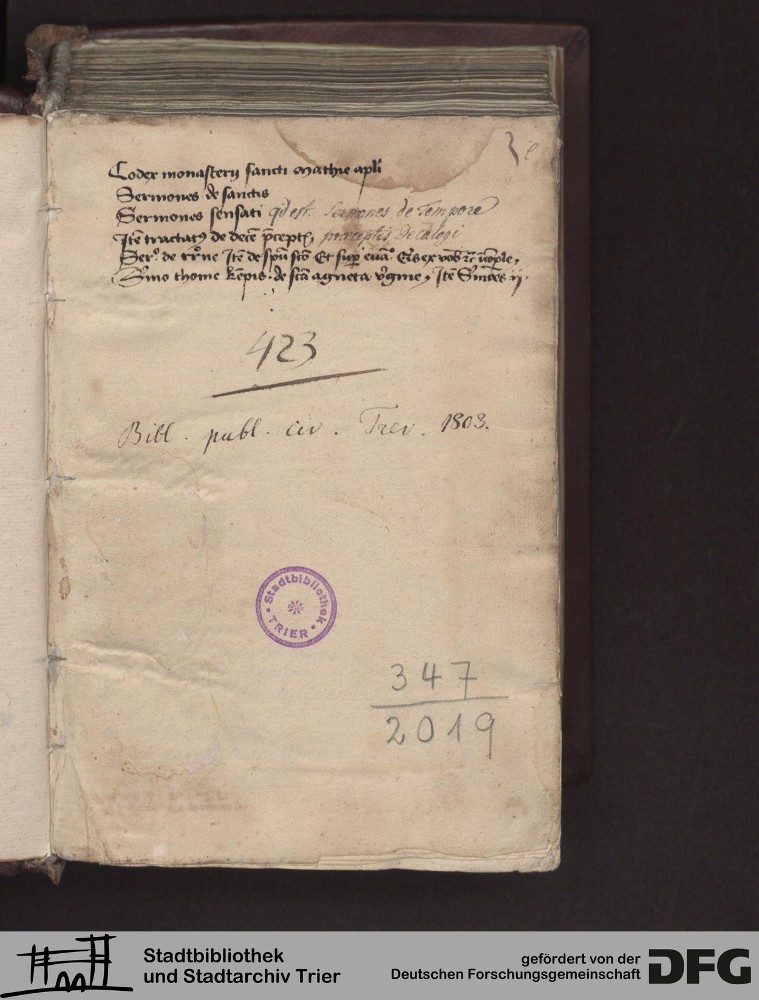 Codex monasterij sancti Mathie apli
Sermones de sanctis
Sermones sensati q'd est. Sermones de Tempore
Itē tractatꝰ de decē p̄cept, præceptis Decalogi
de Itē de spū scō Et sup euā
thome kēpis de scā agneta v'gine, Itē ij.
423
Bibl. publ. civ. Trev. 1803.
Stadtbibliothek
TRIER
347
2019
Stadtbibliothek
und Stadtarchiv Trier
gefördert von der
Deutschen Forschungsgemeinschaft
DFG